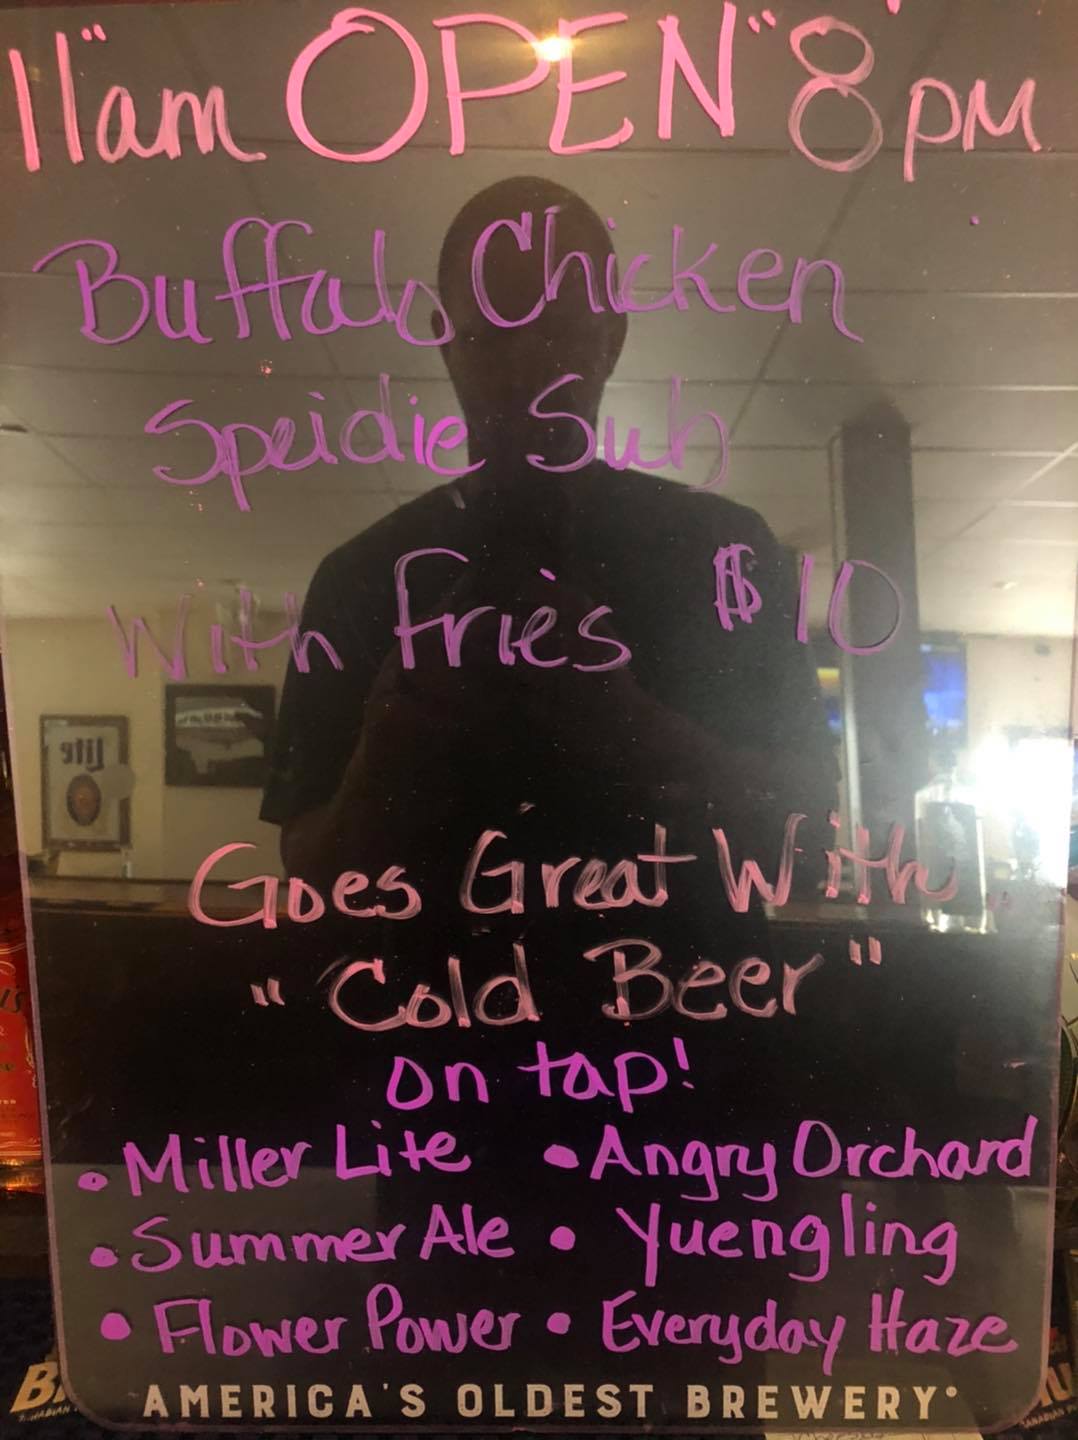 11"am OPEN" 8'pm
Buffalo Chicken
Speidie Sub
With fries $10
Goes Great With...
"Cold Beer"
on tap!
• Miller Lite • Angry Orchard
• Summer Ale • Yuengling
• Flower Power • Everyday Haze
AMERICA'S OLDEST BREWERY
Lite